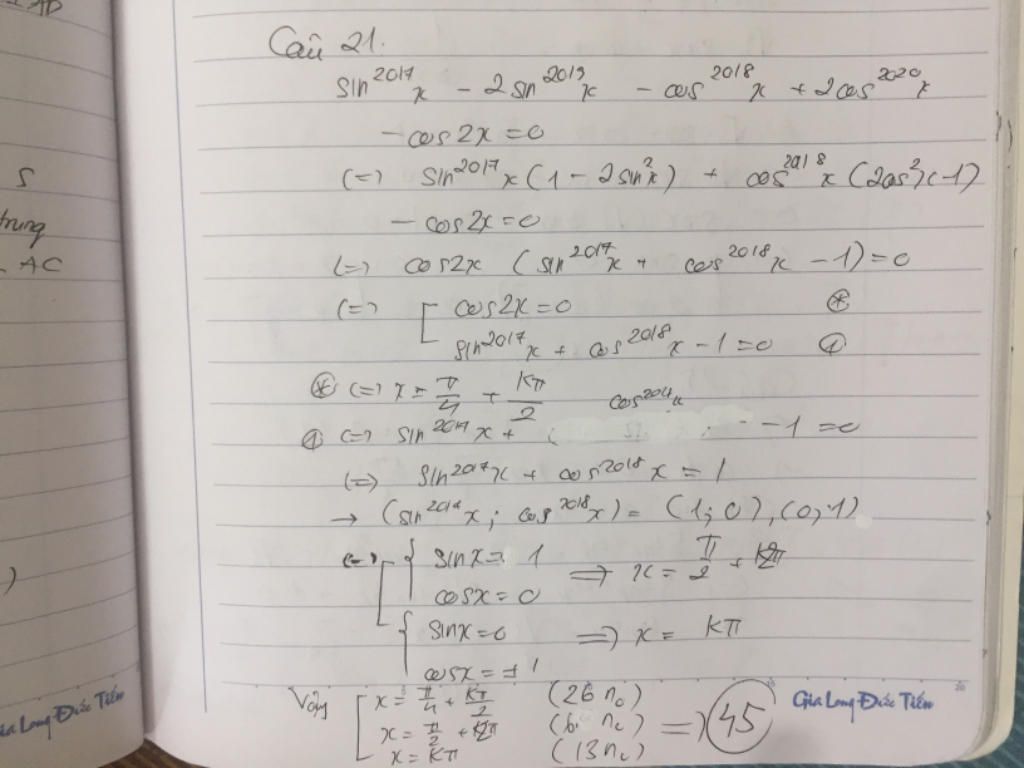 Câu 21.
sin^2017 x - 2 sin^2019 x - cos^2018 x + 2cos^2020 x
- cos 2x = 0
(=) sin^2017 x (1 - 2 sin^2 x) + cos^2018 x (2cos^2 x - 1)
- cos 2x = 0
(=) cos2x (sin^2017 x + cos^2018 x - 1) = 0
(=) [ cos2x = 0 (*)
sin^2017 x + cos^2018 x - 1 = 0 (1)
(*) (=) x = π/4 + Kπ/2
(1) (=) sin^2017 x + - 1 = 0
(=) sin^2017 x + cos^2018 x = 1
→ (sin^2017 x ; cos^2018 x) = (1; 0), (0, 1)
(=) [ { sin x = 1
cos x = 0 => x = π/2 + K2π
{ sin x = 0 => x = Kπ
cos x = ±1
Vậy [ x = π/4 + Kπ/2 (26 no)
x = π/2 + K2π (6 no) => 45
x = Kπ (13 no)
Gia Long Đức Tiến
ia Long Đức Tiến
S
trung
AC
)